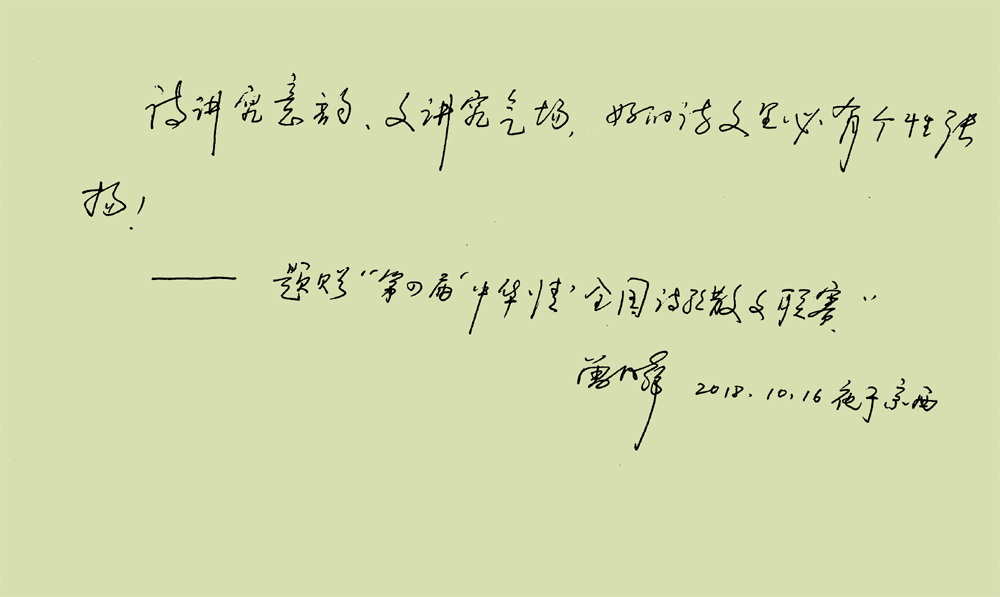 诗讲究意韵、文讲究气场,好的诗文里必有个性张
扬!
—— 题赠“第四届‘中华情’全国诗歌散文联赛”
曾 2018.10.16夜于京西